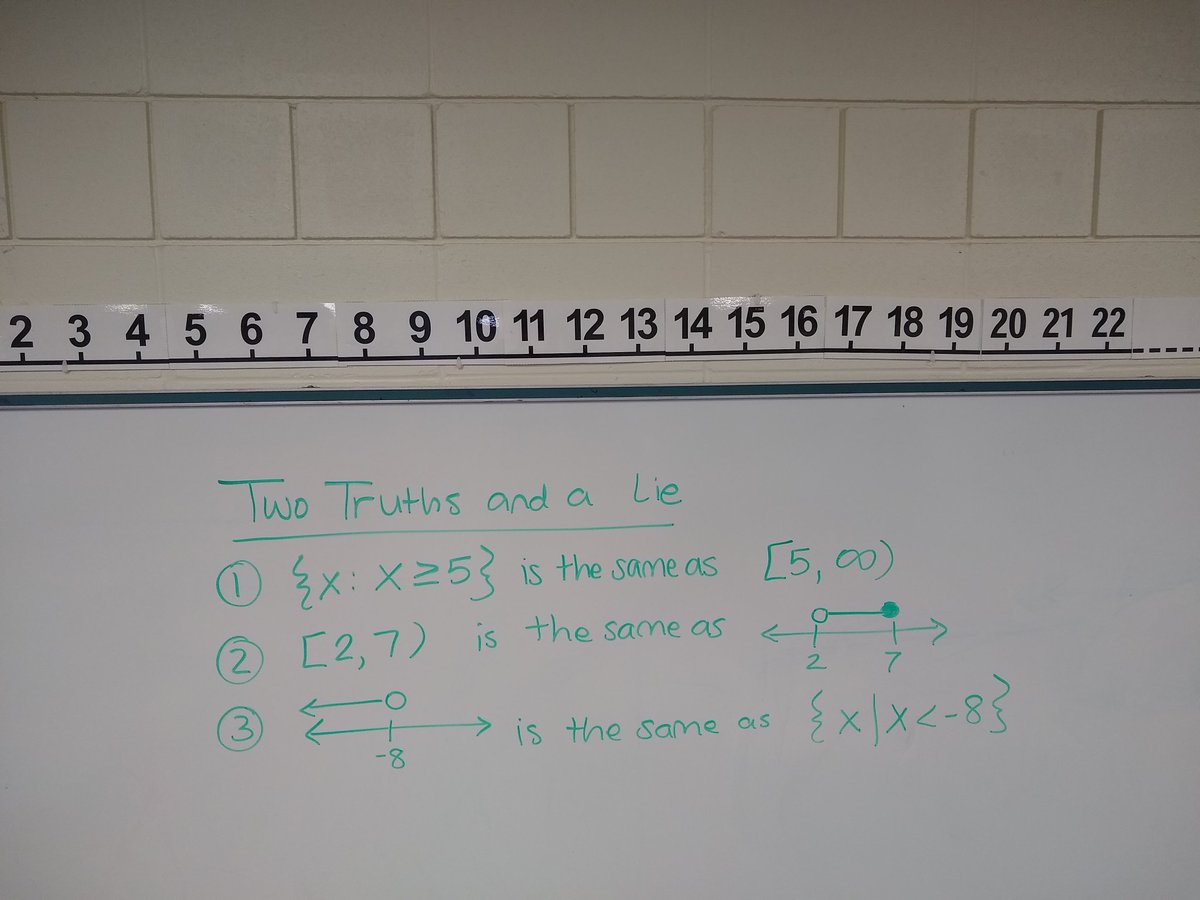 2 3 4 5 6 7 8 9 10 11 12 13 14 15 16 17 18 19 20 21 22
Two Truths and a Lie
① {x: x ≥ 5} is the same as [5, ∞)
② [2, 7) is the same as
2 7
③ is the same as {x | x < -8}
-8